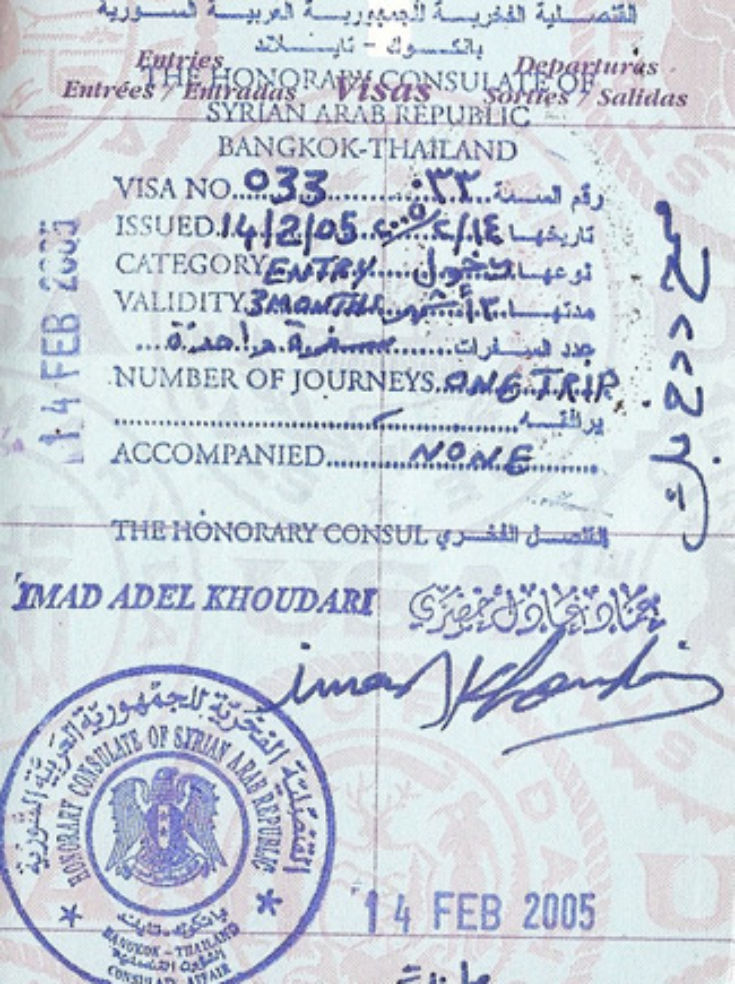 القنصـلية الفخريـة للجمهوريـة العربيـة السـورية
بانكـوك - تايـلاند
Entries Departures
Entrées / Entradas Visas Sorties / Salidas
THE HONORARY CONSULATE OF
SYRIAN ARAB REPUBLIC
BANGKOK-THAILAND
VISA NO..033............٠٣٣...رقم السمة
ISSUED.14/2/05 ٢٠٠٥/٢/١٤ تاريخها
CATEGORY ENTRY.....دخول نوعها
VALIDITY 3 MONTHS ٣ أشهر مدتها
سفرة واحدة عدد السفرات
NUMBER OF JOURNEYS ONE TRIP
يرافقه
ACCOMPANIED......NONE
THE HONORARY CONSUL القنصل الفخري
IMAD ADEL KHOUDARI عماد عادل خضري
imad Khoudari
14 FEB 2005
القنصلية الفخرية للجمهورية العربية السورية
HONORARY CONSULATE OF SYRIAN ARAB REPUBLIC
بانكوك - تايلاند
BANGKOK - THAILAND
الشؤون القنصلية
CONSULAR AFFAIR
14 FEB 2005